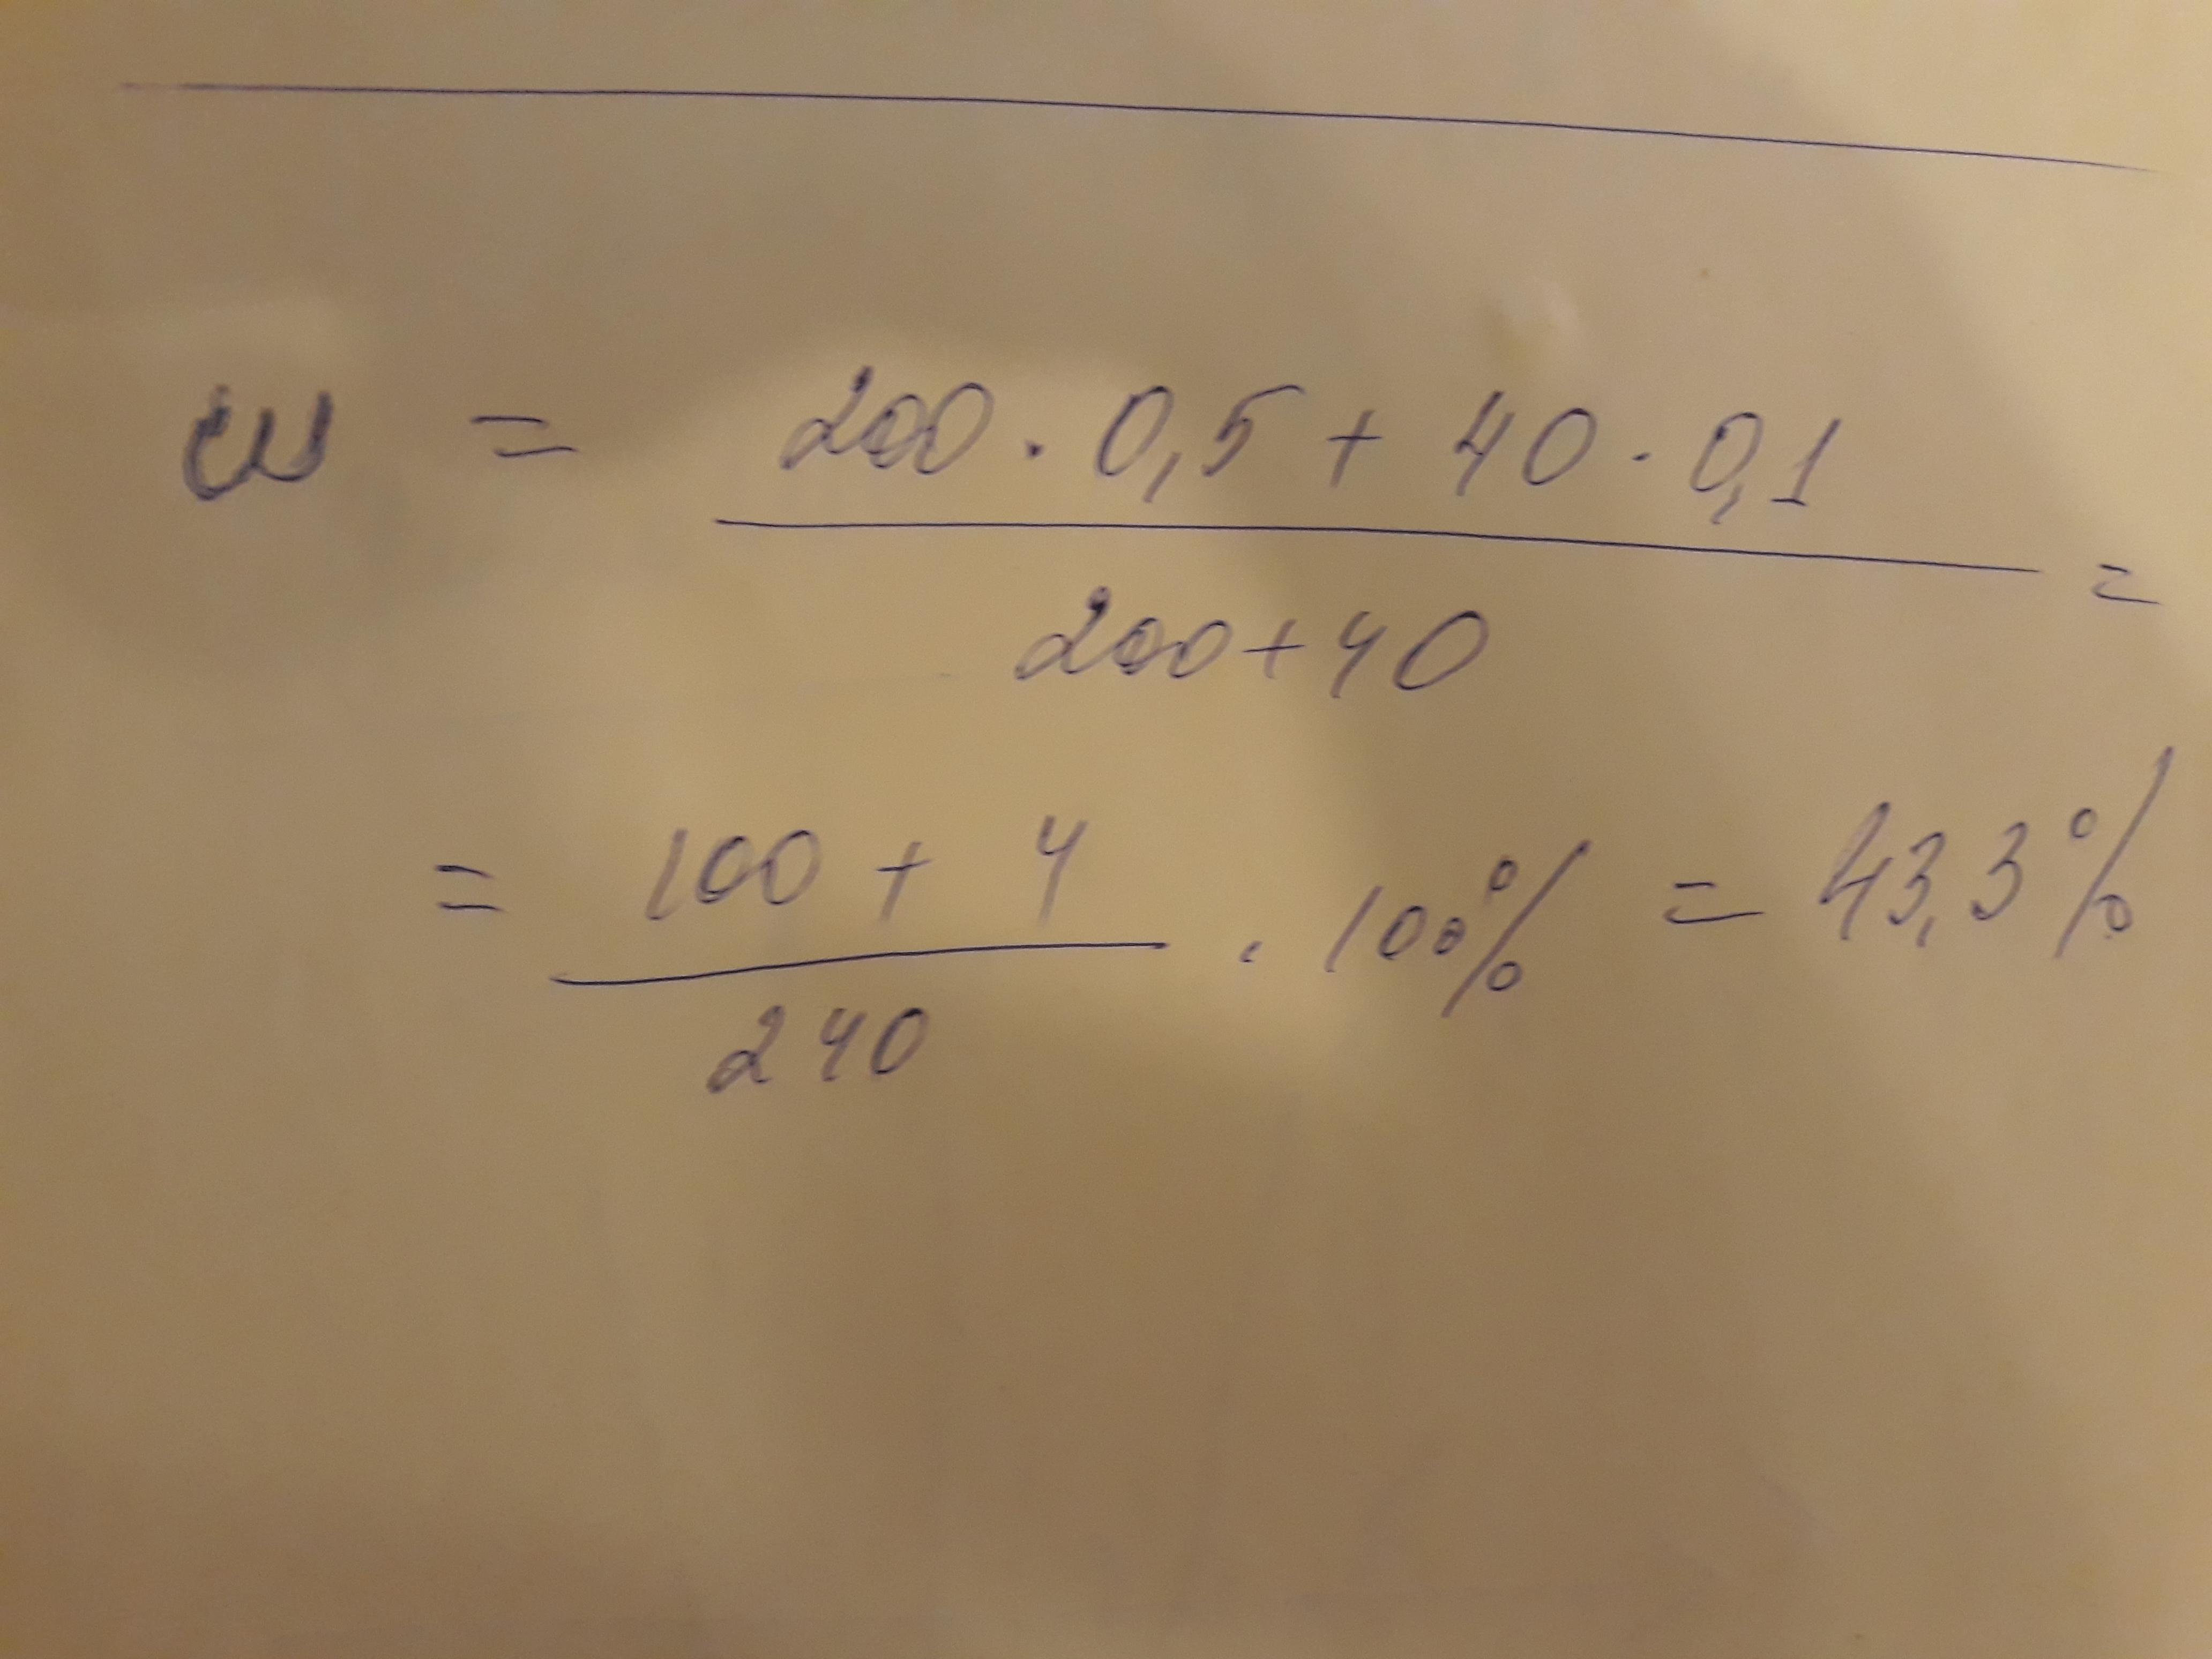 ω = (200 · 0,5 + 40 · 0,1) / (200+40) =
= (100 + 4) / 240 · 100% = 43,3%